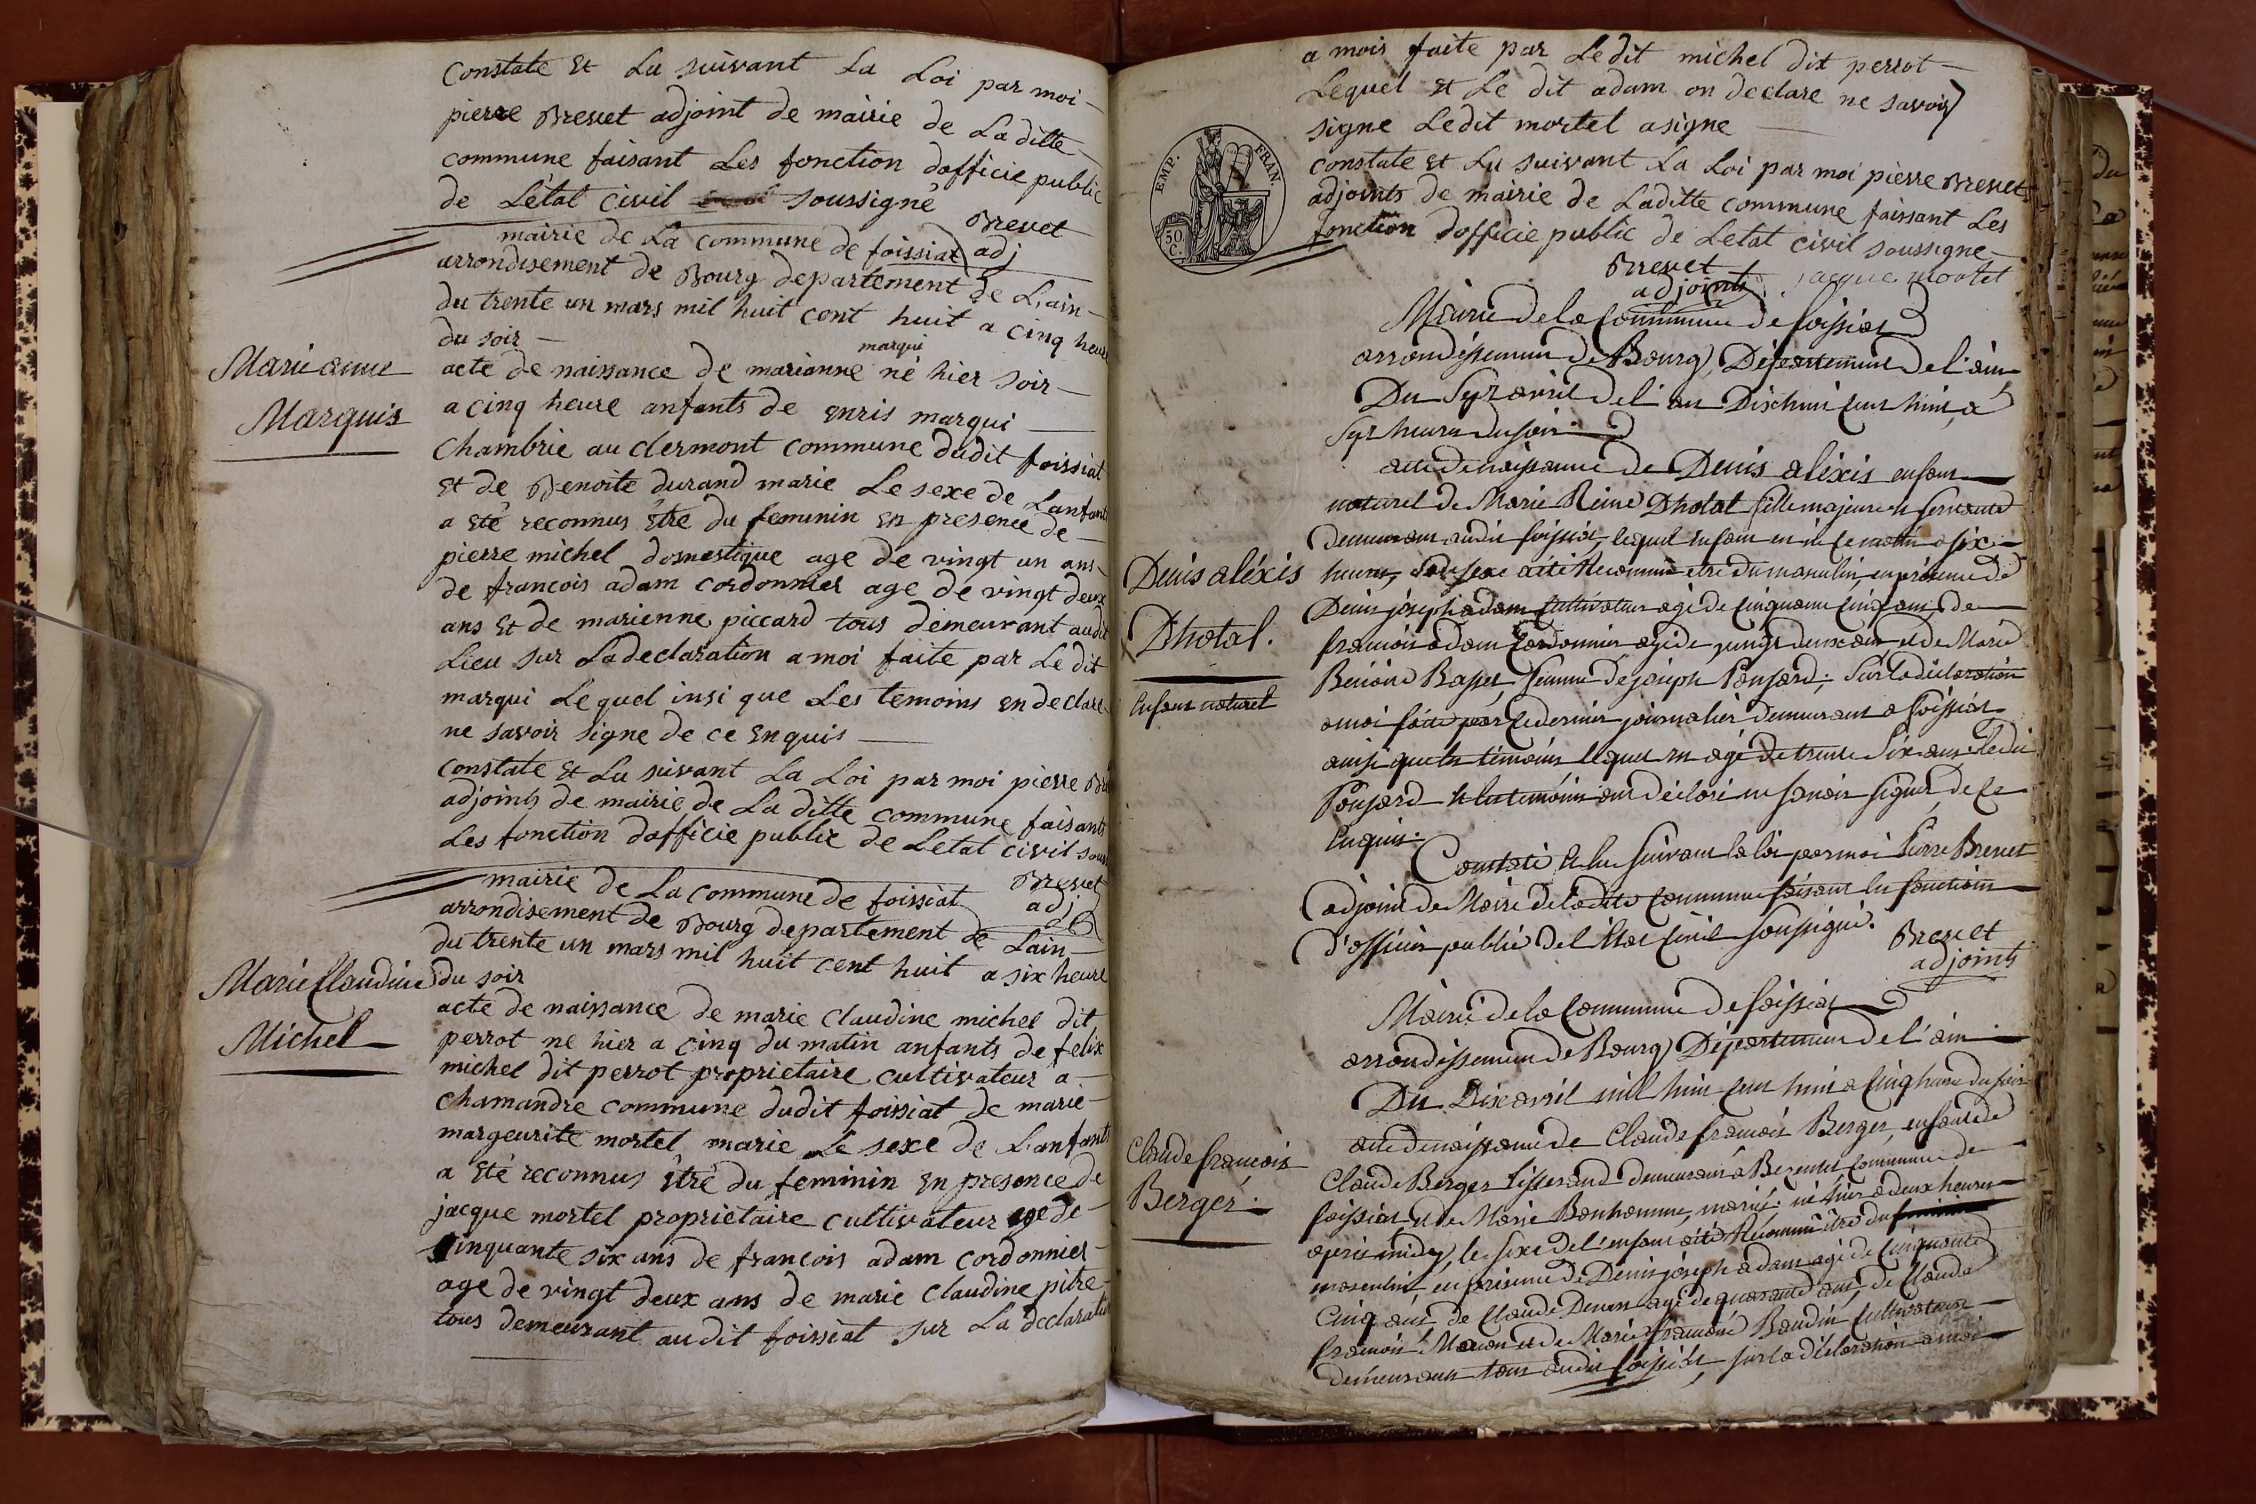 constate Et Lu suivant La Loi par moi
pierre Brevet adjoint de mairie de La ditte
commune faisant Les fonction d'officie public
de L'état civil soussigné
Brevet
adj
mairie de La commune de foissiat
arrondisement de Bourg departement de L'ain
du trente un mars mil huit cent huit a cinq heure
du soir
Marie anne
Marquis
marqui
acte de naissance de marianne né hier soir
a cinq heure anfants de enris marqui
chambrie au clermont commune dudit foissiat
Et de Benoite durand marie Le sexe de L'anfant
a Eté reconnus être du feminin En presence de
pierre michel domestique age de vingt un ans
de francois adam cordonnier age de vingt deux
ans Et de marienne piccard tous demeurant audit
Lieu sur La declaration a moi faite par Le dit
marqui Lequel insi que Les temoins en declare
ne savoir signe de ce Enquis
constate Et Lu suivant La Loi par moi pierre Bre
adjoints de mairie de La ditte commune faisants
Les fonction d'officie public de Letat civil sous
Brevet
adj
mairie de La commune de foissiat
arrondisement de Bourg departement de Lain
du trente un mars mil huit cent huit a six heure
Marie Claudine
Michel
du soir
acte de naissance de marie claudine michel dit
perrot ne hier a cinq du matin anfants de felix
michel dit perrot proprietaire cultivateur a
chamandre commune dudit foissiat de marie
margeurite mortel marie Le sexe de L'anfants
a Eté reconnus être du feminin En presence de
jacque mortel proprietaire cultivateur age de
cinquante six ans de francois adam cordonnier
age de vingt deux ans de marie claudine pitre
tous demeurant au dit foissiat sur La declaration
a mois faite par Ledit michel dit perrot
Lequel Et Le dit adam on declare ne savoir
signe Ledit mortel a signe
EMP. FRAN
50 C.
constate Et Lu suivant La Loi par moi pierre Brevet
adjoints de mairie de Laditte commune faissant Les
fonction d'officie public de Letat civil soussigne
Brevet
adjoints
jacque mortel
Mairie de la Commune de foissiat
arrondissement de Bourg, Département de l'ain
Du Sept avril de l'an Dixhuit cent huit, à
Sept heures du soir
acte de naissance de Denis aléxis enfant
naturel de Marie Reine Dhotal fille majeure et servante
demeurant audit foissiat, lequel enfant est né ce matin a six
Denis aléxis
Dhotal.
Enfant naturel
heures, Son sexe a été Reconnu être du masculin, en présence de
Denis joseph adam Cultivateur agé de Cinquante Cinq ans, de
francois adam Cordonnier agé de vingt deux ans, et de Marie
femme de joseph Ponsard; Sur la déclaration
a moi faite par ce dernier journalier demeurant a foissiat
ainsi que les témoins lequel est agé de trente Six ans ledit
Ponsard et les témoins ont déclaré ne savoir signer de ce
Enquis.
Constaté et lu suivant la loi par moi Pierre Brevet
adjoint de Maire de ladite Commune faisant les fonctions
d'officier public de l'état Civil soussigné.
Brevet
adjoints
Mairie de la Commune de foissiat
arrondissement de Bourg Département de l'ain
Du Dix avril mill huit cent huit a Cinq heures du soir
Claude francois
Berger.
acte de naissance de Claude francois Berger, enfant de
Claude Berger tisserand demeurant a Commune de
foissiat et de Marie Bonhomme, mariés. né hier a deux heures
après midy, le sexe de l'enfant a été Reconnu être du
masculin, en présence de Denis joseph adam agé de Cinquante
Cinq ans, de Claude agé de quarante ans, de Claude
francois et de Marie Baudin Cultivateur
demeurant tous audit foissiat, sur la déclaration a moi